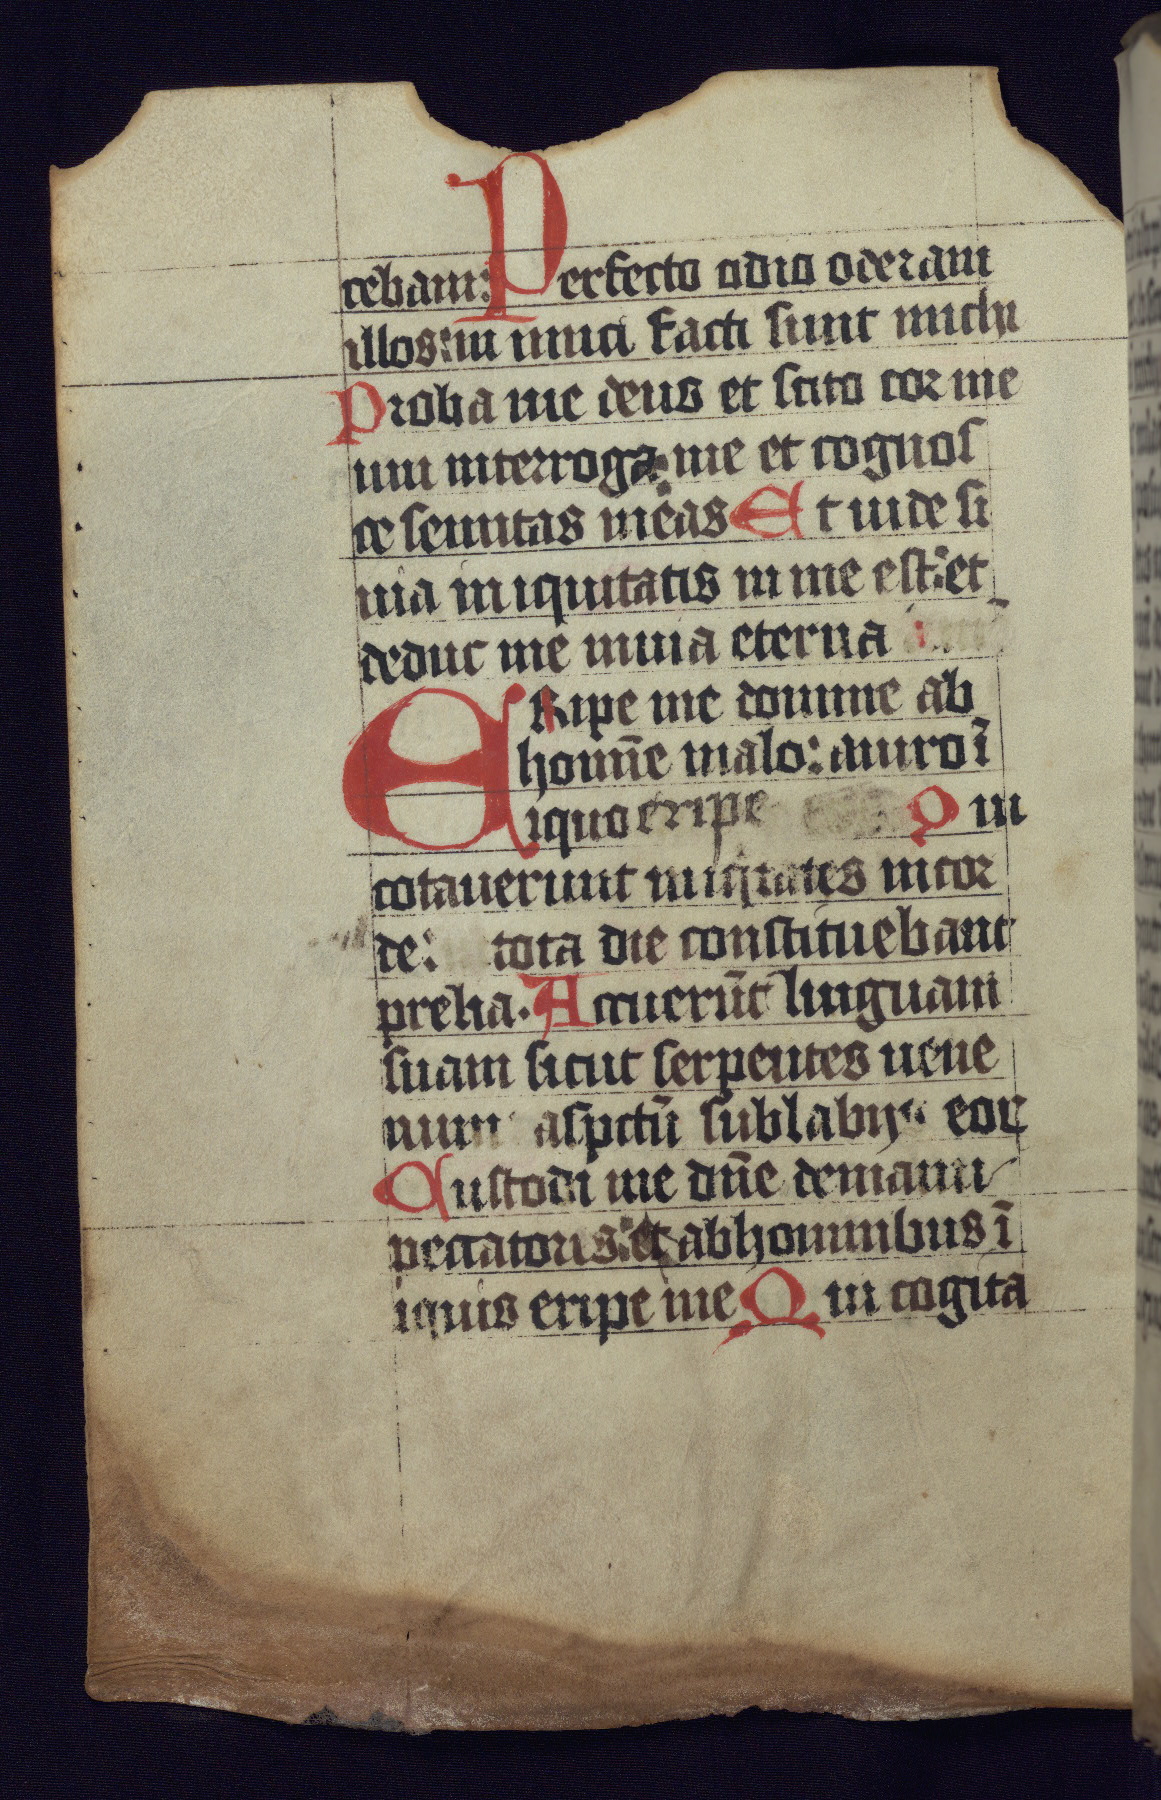 cebam: Perfecto odio oderam
illos: in imici facti sunt michi
Proba me deus et scito cor me
um interroga me et cognos
ce semitas meas Et uide si
uia in iquitatis in me est: et
deduc me inuia eterna
ERipe me domine ab
homīe malo: auiro ī
iquo eripe Q ui
cotauerunt iniq̄tates incor
de: tota die constituebant
prelia. Acuerūt linguam
suam sicut serpentes uene
num aspidū sub labiis eor
Custodi me dn̄e demanu
peccatoris: et abhominibus ī
iquis eripe me Q ui cogita